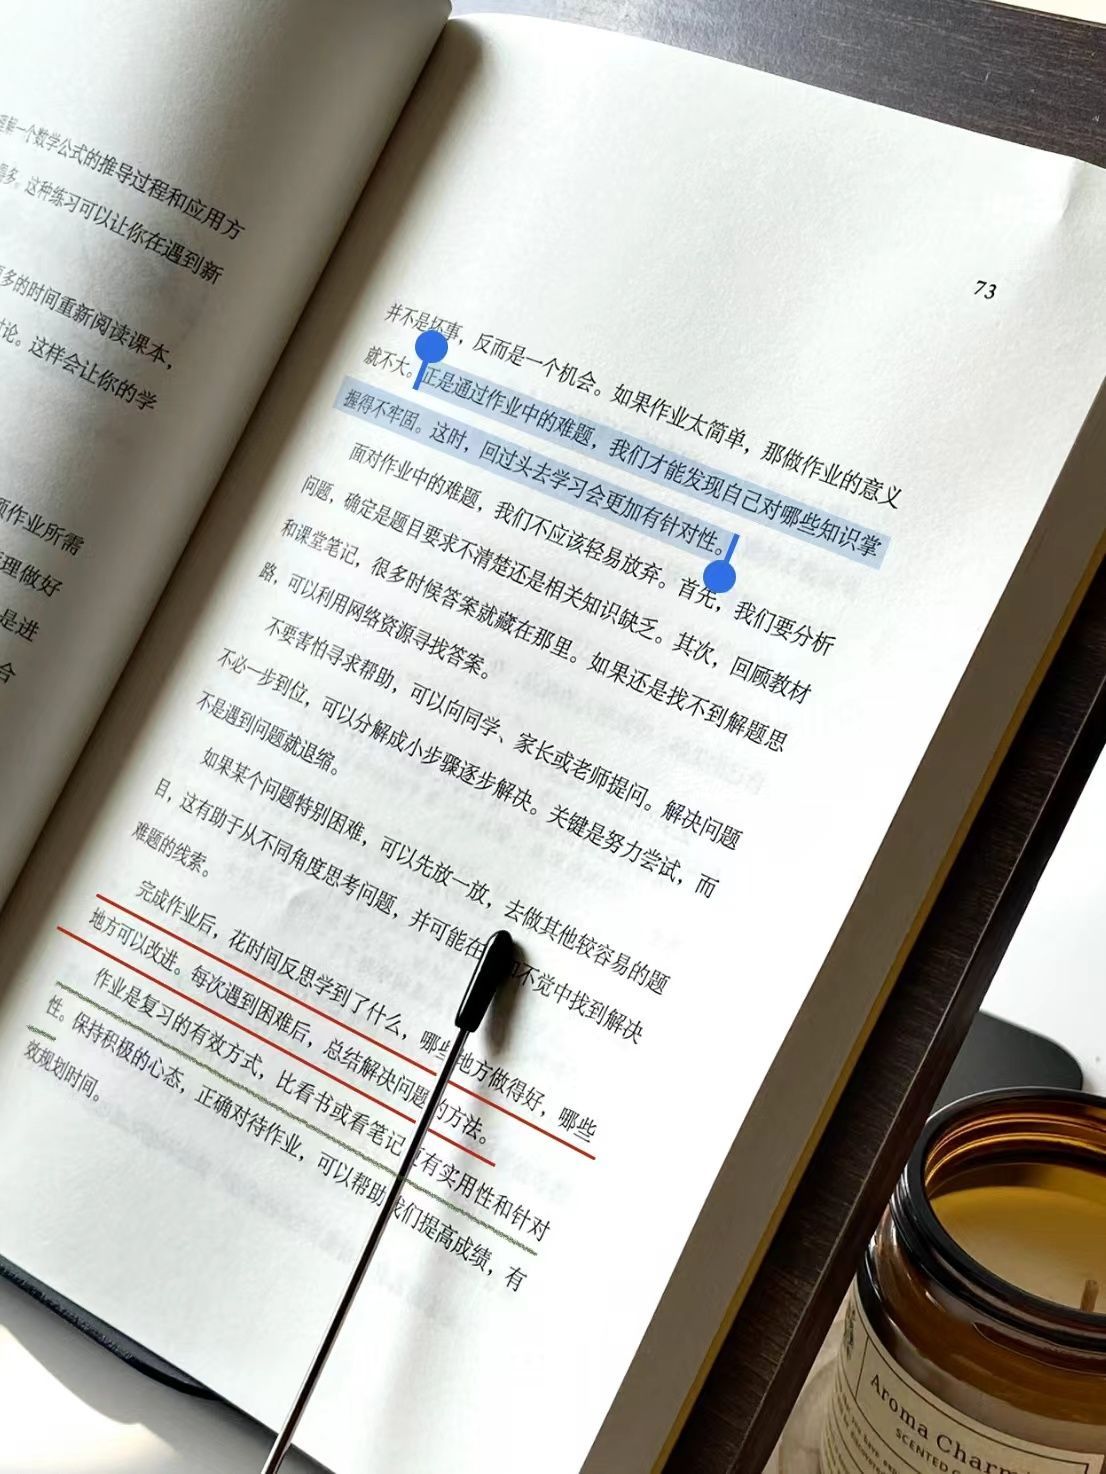 一个数学公式的推导过程和应用方
多。这种练习可以让你在遇到新
多的时间重新阅读课本，
讨论。这样会让你的学
作业所需
理做好
是进
合
73
并不是坏事，反而是一个机会。如果作业太简单，那做作业的意义
就不大。正是通过作业中的难题，我们才能发现自己对哪些知识掌
握得不牢固。这时，回过头去学习会更加有针对性。
面对作业中的难题，我们不应该轻易放弃。首先，我们要分析
问题，确定是题目要求不清楚还是相关知识缺乏。其次，回顾教材
和课堂笔记，很多时候答案就藏在那里。如果还是找不到解题思
路，可以利用网络资源寻找答案。
不要害怕寻求帮助，可以向同学、家长或老师提问。解决问题
不必一步到位，可以分解成小步骤逐步解决。关键是努力尝试，而
不是遇到问题就退缩。
如果某个问题特别困难，可以先放一放，去做其他较容易的题
目，这有助于从不同角度思考问题，并可能在不觉中找到解决
难题的线索。
完成作业后，花时间反思学到了什么，哪些地方做得好，哪些
地方可以改进。每次遇到困难后，总结解决问题的方法。
作业是复习的有效方式，比看书或看笔记有实用性和针对
性。保持积极的心态，正确对待作业，可以帮助我们提高成绩，有
效规划时间。
Aroma Charm
SCENTED